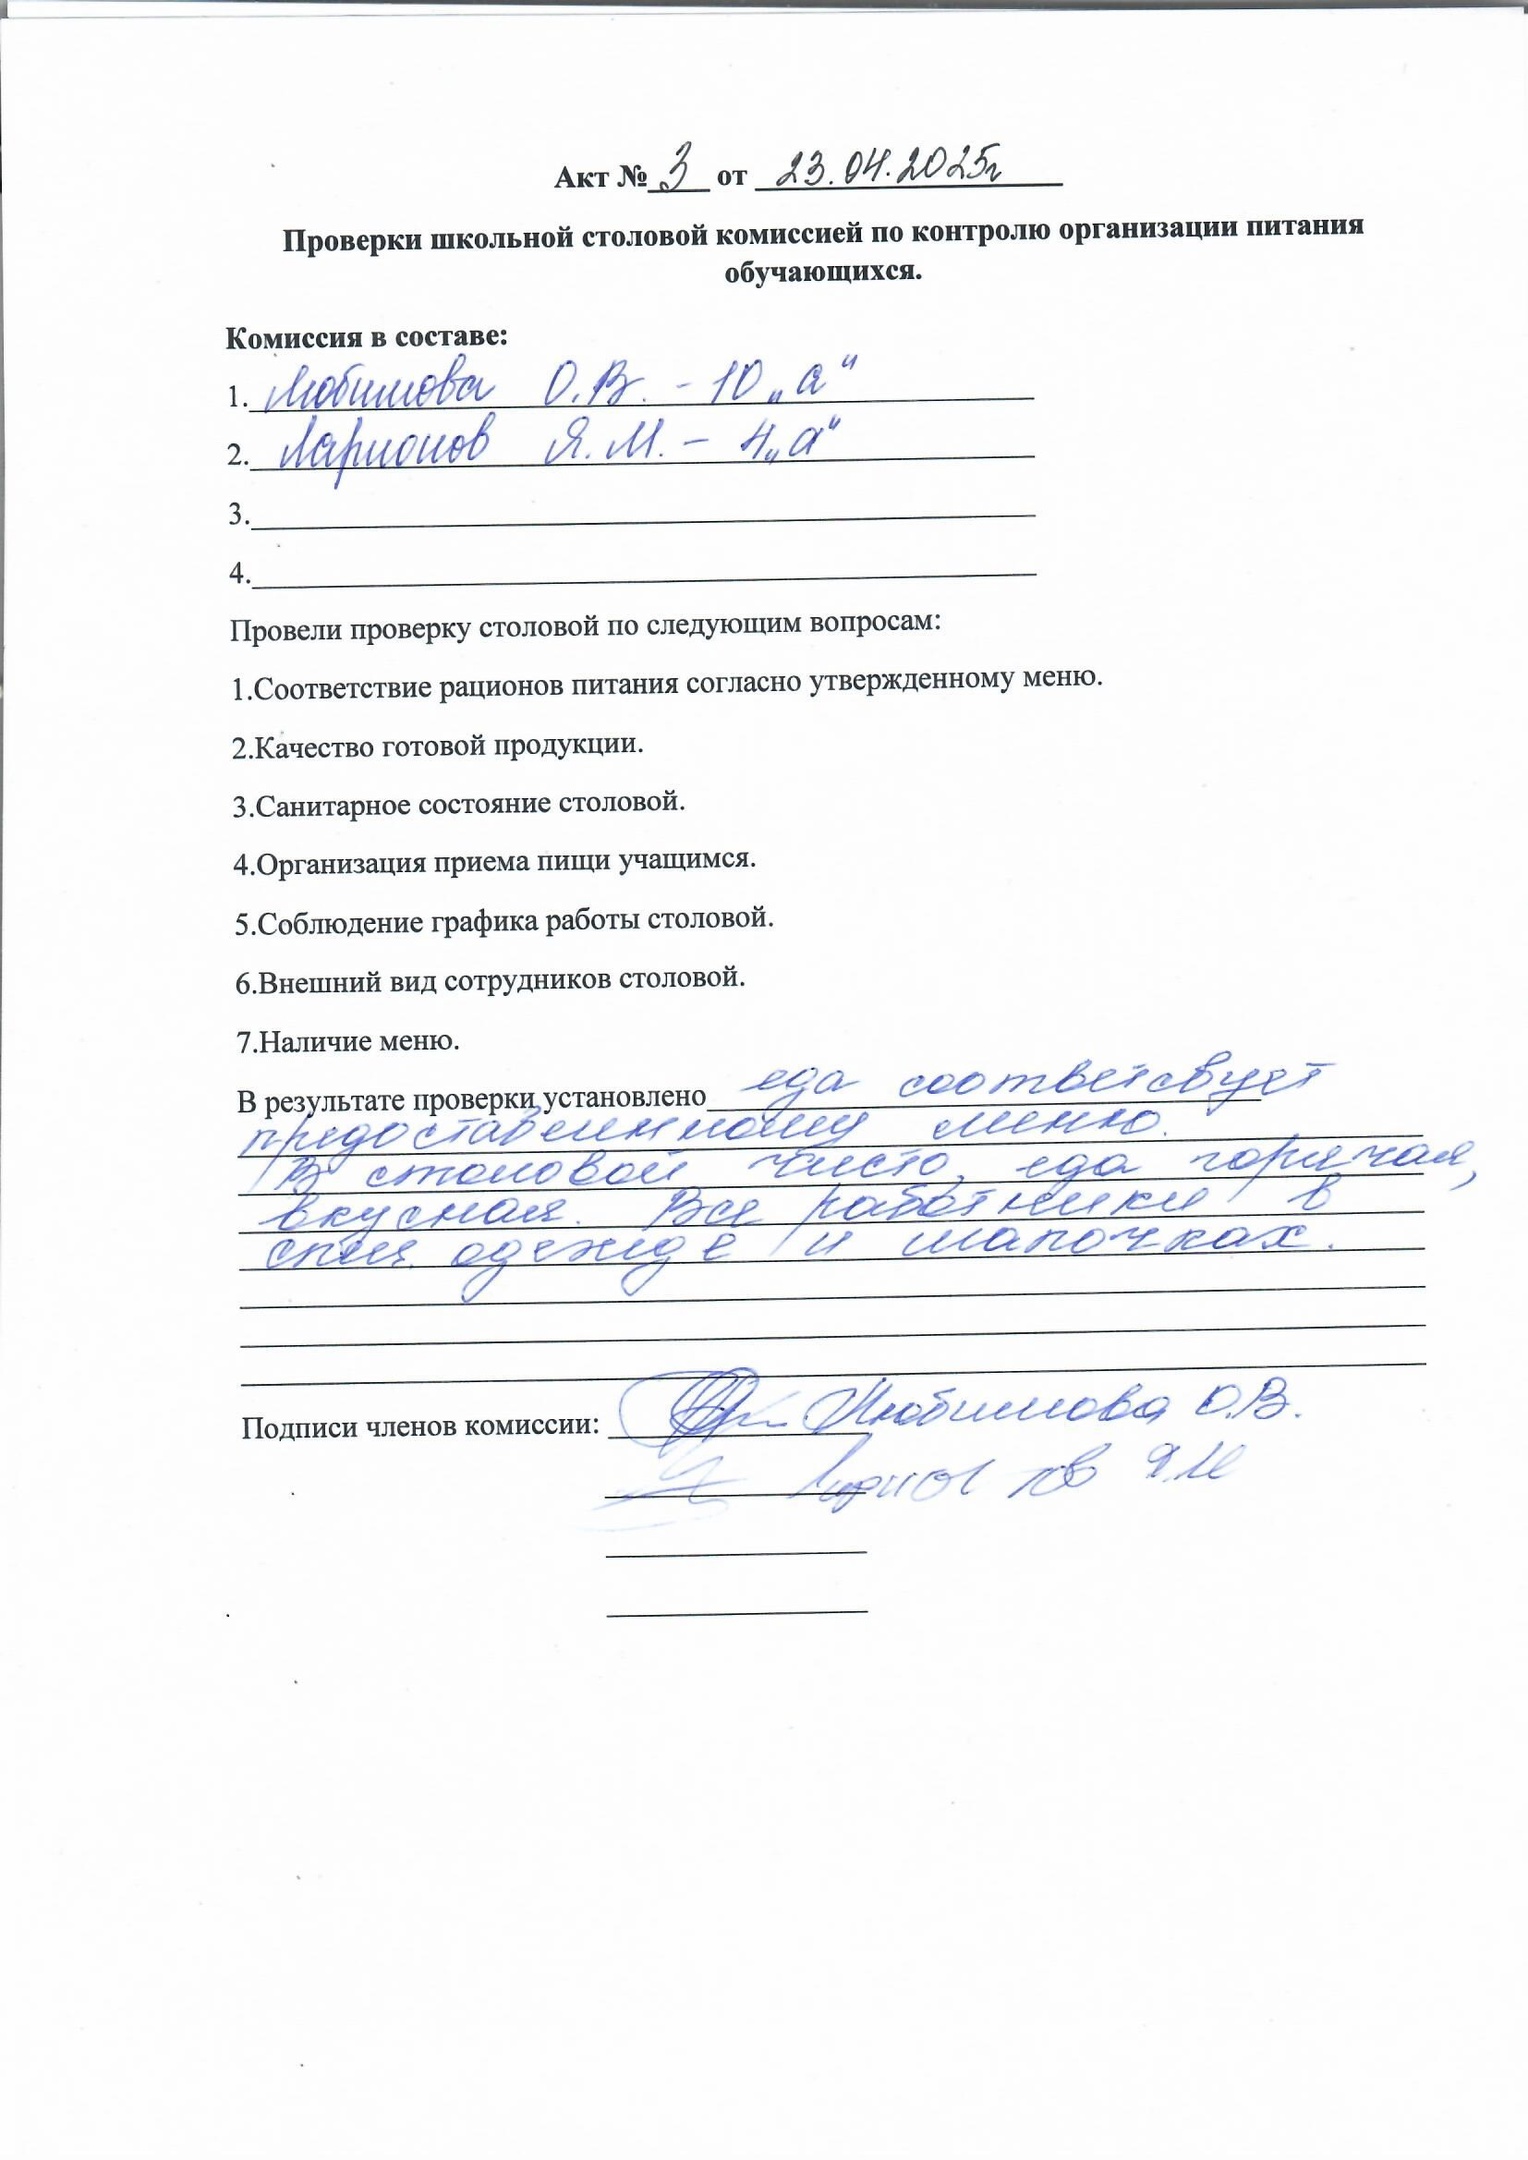 Акт № 3 от 23.04.2025г
Проверки школьной столовой комиссией по контролю организации питания
обучающихся.
Комиссия в составе:
1. Любимова О.В. - 10 „а“
2. Ларионов Я.М. - 4 „а“
3.
4.
Провели проверку столовой по следующим вопросам:
1.Соответствие рационов питания согласно утвержденному меню.
2.Качество готовой продукции.
3.Санитарное состояние столовой.
4.Организация приема пищи учащимся.
5.Соблюдение графика работы столовой.
6.Внешний вид сотрудников столовой.
7.Наличие меню.
В результате проверки установлено еда соответсвует
предоставленному меню.
В столовой чисто, еда горячая,
вкусная. Все работники в
спец. одежде и шапочках.
Подписи членов комиссии: Любимова О.В.
Ларионов Я.М